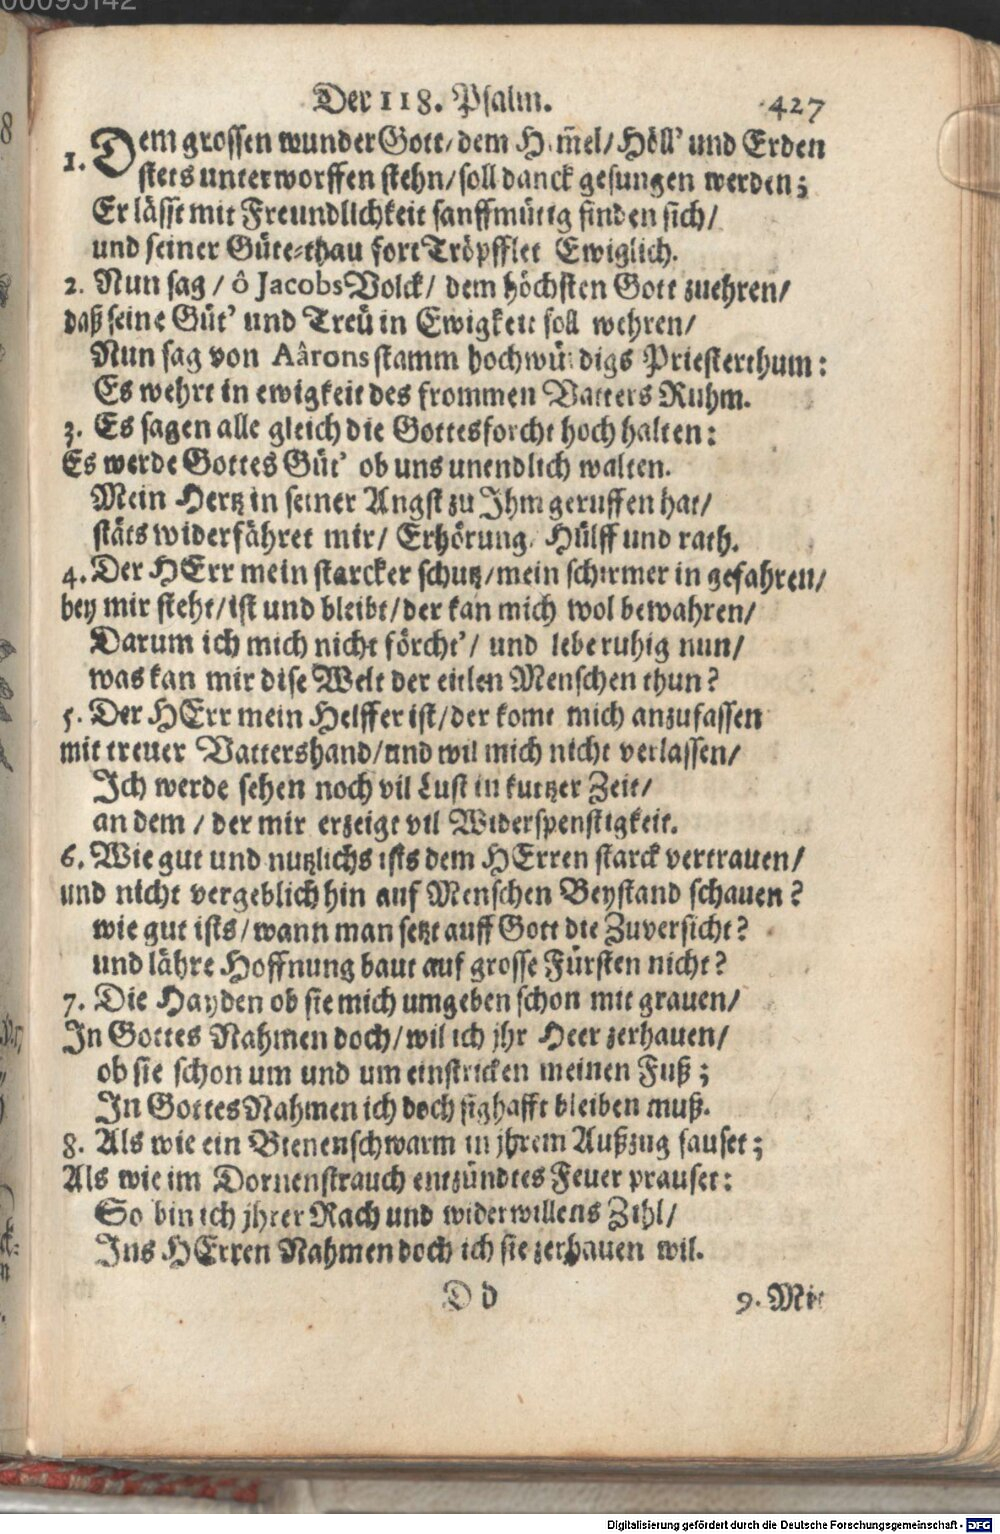 00095142
Der 118. Psalm. 427
1. Dem grossen wunder Gott/ dem Him̅el/ Höll' und Erden
stets unterworffen stehn/ soll danck gesungen werden;
Er lässt mit Freundlichkeit sanffmütig finden sich/
und seiner Güte-thau fort Tröpfflet Ewiglich.
2. Nun sag / ô Jacobs Volck/ dem höchsten Gott zuehren/
daß seine Güt' und Treü in Ewigkeit soll wehren/
Nun sag von Aârons stamm hochwürdigs Priesterthum:
Es wehrt in ewigkeit des frommen Vatters Ruhm.
3. Es sagen alle gleich die Gottesforcht hoch halten:
Es werde Gottes Güt' ob uns unendlich walten.
Mein Hertz in seiner Angst zu Ihm geruffen hat/
stäts widerfähret mir/ Erhörung, Hülff und rath.
4. Der HErr mein starcker schutz/ mein schirmer in gefahren/
bey mir steht/ ist und bleibt/ der kan mich wol bewahren/
Darum ich mich nicht förcht'/ und lebe ruhig nun/
was kan mir dise Welt der eitlen Menschen thun?
5. Der HErr mein Helffer ist/ der komt mich anzufassen
mit treuer Vattershand/ und wil mich nicht verlassen/
Ich werde sehen noch vil Lust in kurtzer Zeit/
an dem / der mir erzeigt vil Widerspenstigkeit.
6. Wie gut und nutzlichs ists dem HErren starck vertrauen/
und nicht vergeblich hin auf Menschen Beystand schauen?
wie gut ists/ wann man setzt auff Gott die Zuversicht?
und lähre Hoffnung baut auf grosse Fürsten nicht?
7. Die Hayden ob sie mich umgeben schon mit grauen/
In Gottes Nahmen doch/ wil ich jhr Heer zerhauen/
ob sie schon um und um einstricken meinen Fuß;
In Gottes Nahmen ich doch sighafft bleiben muß.
8. Als wie ein Bienenschwarm in jhrem Außzug sauset;
Als wie im Dornenstrauch entzündtes Feuer prauset:
So bin ich jhrer Rach und widerwillens Zihl/
Ins HErren Nahmen doch ich sie zerhauen wil.
D d 9. Mit
Digitalisierung gefördert durch die Deutsche Forschungsgemeinschaft - DFG